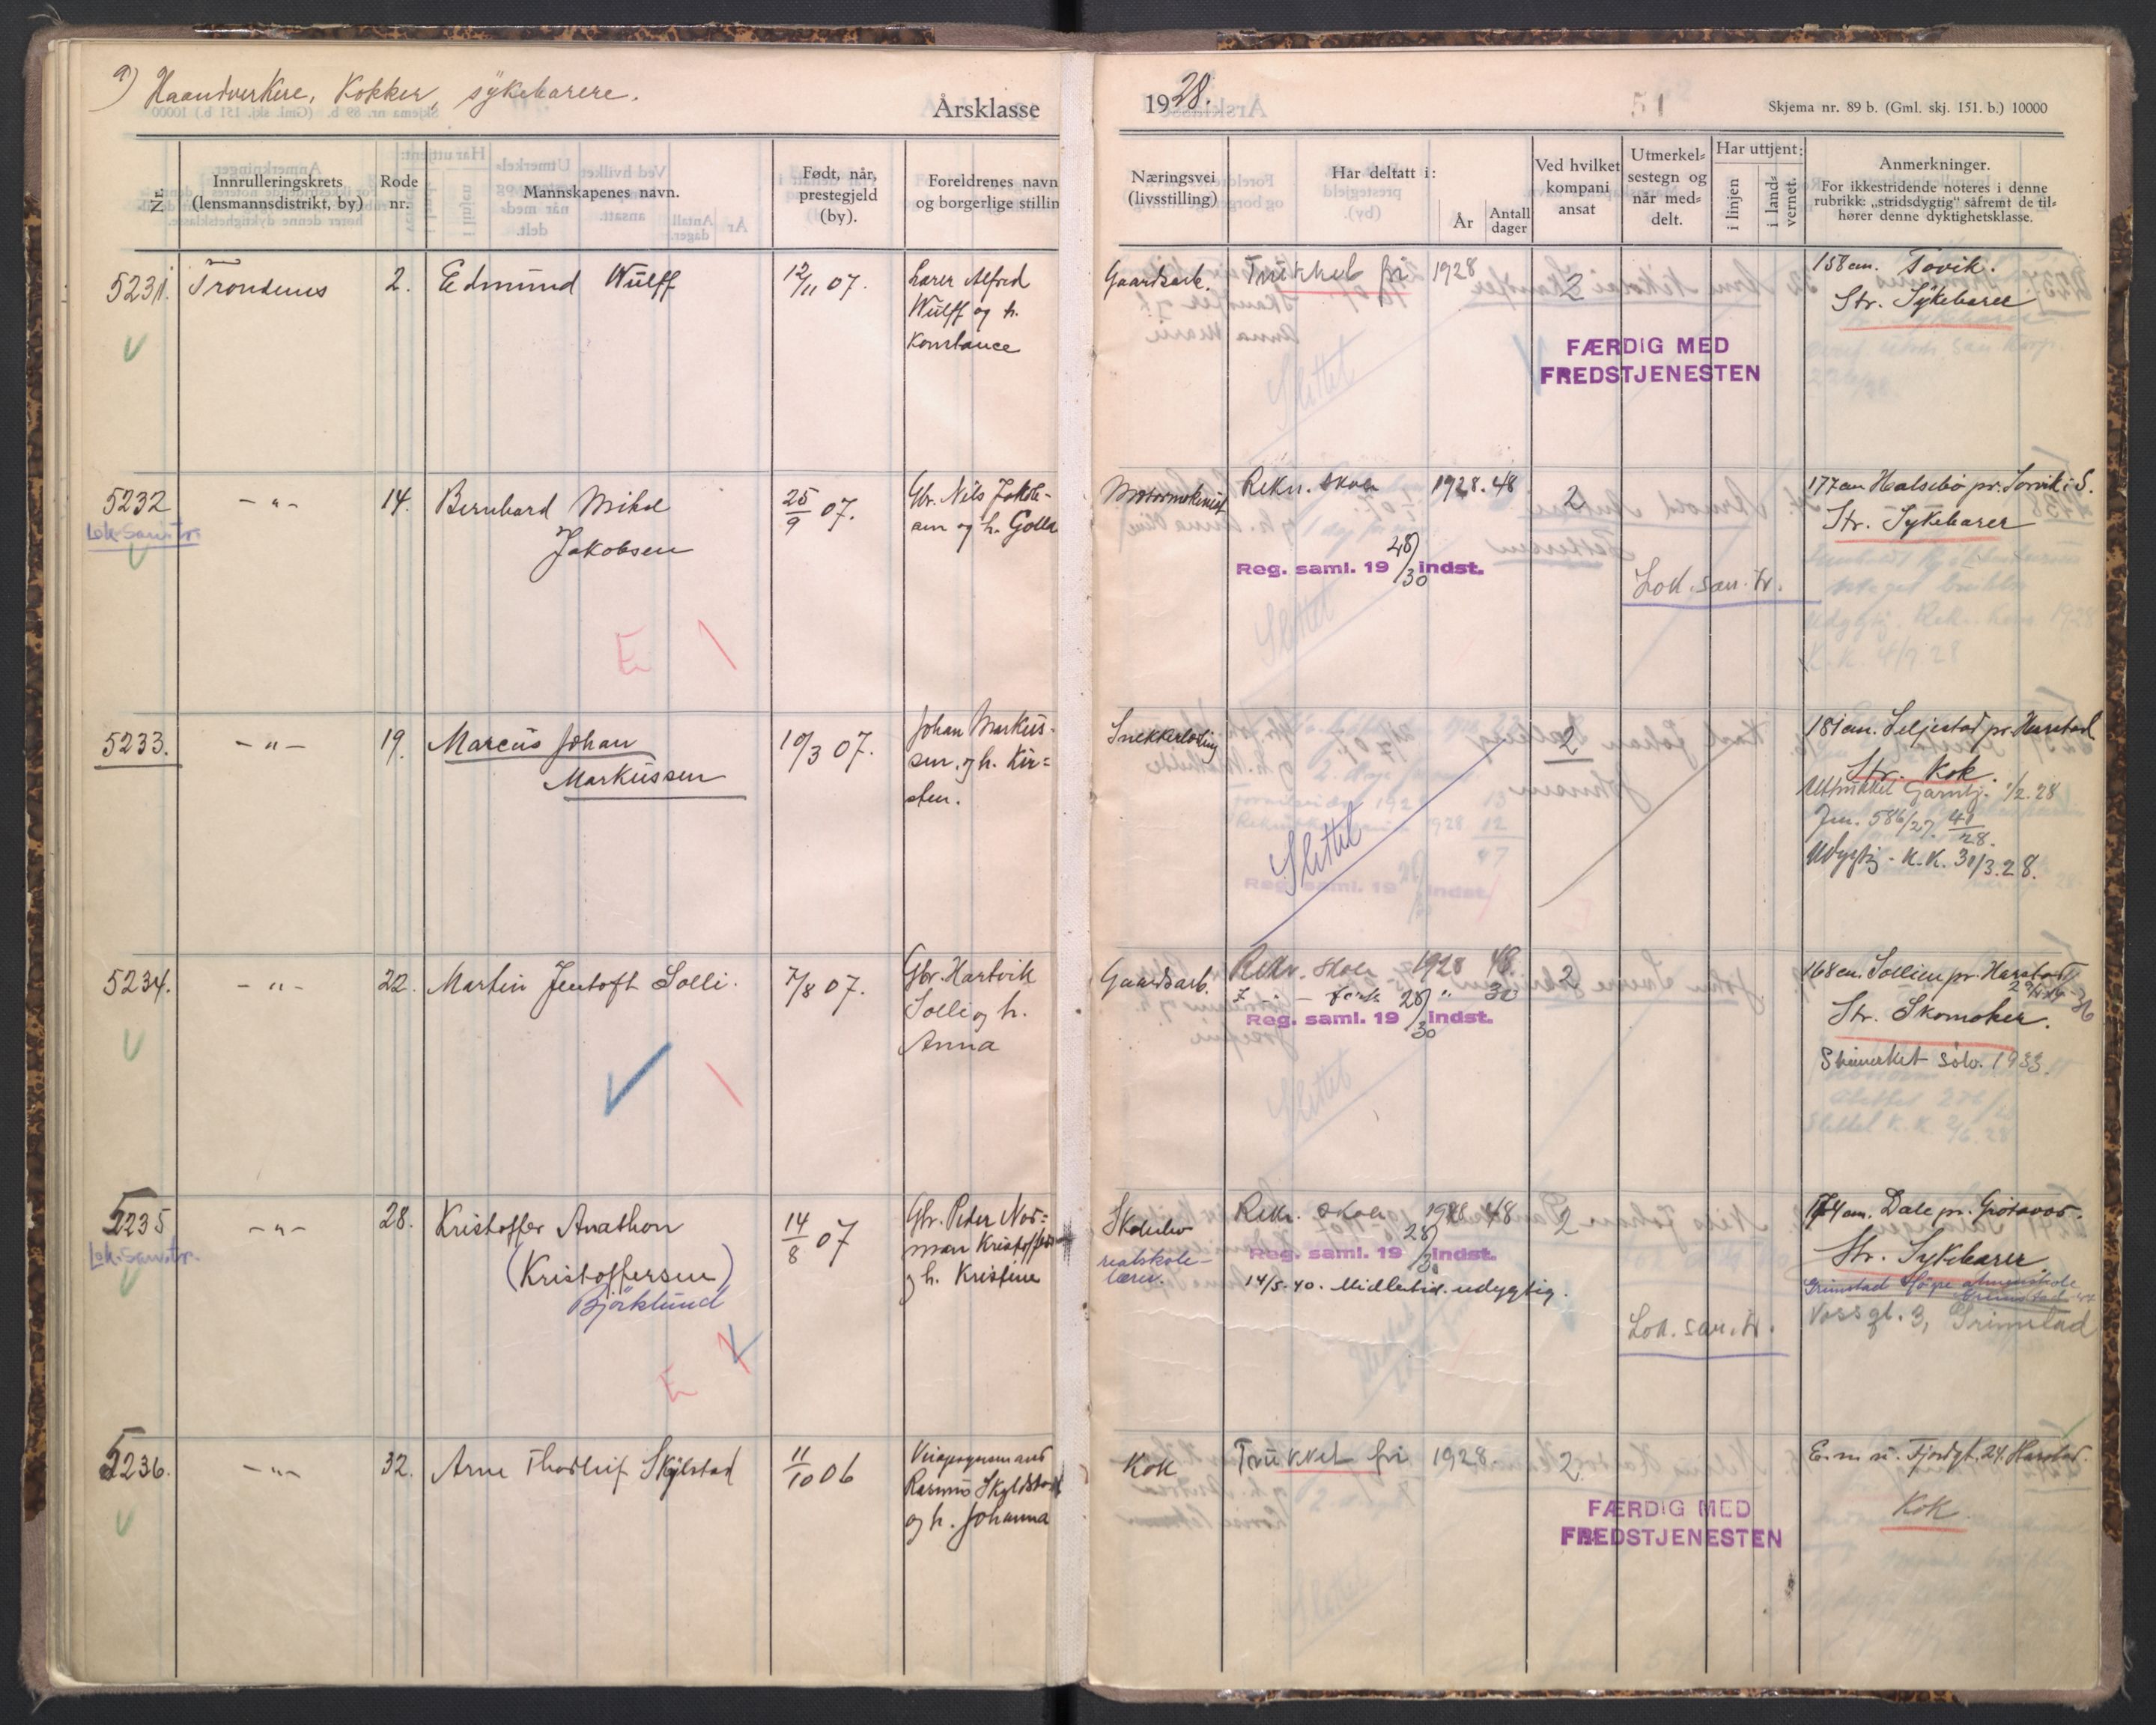 a) Haandverkere, Kokker, sykebærere.
Årsklasse
1928.
51
Skjema nr. 89 b. (Gml. skj. 151. b.) 10000
Nr.
Innrulleringskrets
(lensmannsdistrikt, by)
Rode
nr.
Mannskapenes navn.
Født, når,
prestegjeld
(by).
Foreldrenes navn
og borgerlige stillin
Næringsvei
(livsstilling)
Har deltatt i:
År
Antall
dager
Ved hvilket
kompani
ansat
Utmerkel-
sestegn og
når med-
delt.
Har uttjent:
i linjen
i lands-
vernet.
Anmerkninger.
For ikkestridende noteres i denne
rubrikk: „stridsdygtig" såfremt de til-
hører denne dyktighetsklasse.
5231.
Trondenes
2.
Edmund Wulff
12/11 07.
Lærer Alfred
Wulff og h.
Konstance
Gaardsarb.
Trukket fri 1928
2
FÆRDIG MED
FREDSTJENESTEN
158 cm. Tovik.
Str. Sykebærer
5232
Lok. San. tr.
- " -
14.
Bernhard Mikal
Jakobsen
25/9 07.
Gbr. Nils Jakob-
sen og h. Golla
Motormekenist
Rekr. skole 1928. 48
Reg. saml. 19 28/30 indst.
2
Lok. san. tr.
177 cm Halsebø pr. Sørvik i S.
Str. Sykebærer
E
5233.
- " -
19.
Marcus Johan
Markussen
10/3 07.
Johan Markus-
sen. og h. Kir-
sten.
Snekkerlærling
Slettet
2
181 cm. Seljestad pr. Harstad
Str. Kok.
Uttrukket Garntj. 1/2. 28
Jnr. 586/27. 41/28.
Udygtig - K.K. 31/3. 28.
5234.
- " -
22.
Martin Jentoft Solli.
7/8 07.
Gbr. Hartvik
Solli og h.
Anna
Gaardsarb.
Rekr. skole 1928 48.
" 30
Reg. saml. 19 28/30 indst.
2
168 cm. Sollien pr. Harstad
Str. Skomaker.
Skimerket sølv. 1933.
5235
Lok. San. tr.
- " -
28.
Kristoffer Anathon
(Kristoffersen)
Bjørklund
14/8 07
Gbr. Peder Nor-
man Kristoffersen
og h. Kristine
Skoleelev
realskole-
lærer.
Rekr. skole 1928 48
Reg. saml. 19 28/30 indst.
14/5-40. Midlertid. udygtig.
2
Lok. san. tr.
174 cm. Dale pr. Grøtavær.
Str. Sykebærer.
Grimstad høgre almenskole
Vossgt. 3, Grimstad
E
5236.
- " -
32.
Arne Thorleif Skjilstad
11/10 06
Rasmus Skyldstad
og h. Johanna
Kok
Trukket fri 1928.
2.
FÆRDIG MED
FREDSTJENESTEN
E. m. u. Fjordgt. 24. Harstad.
Kok.